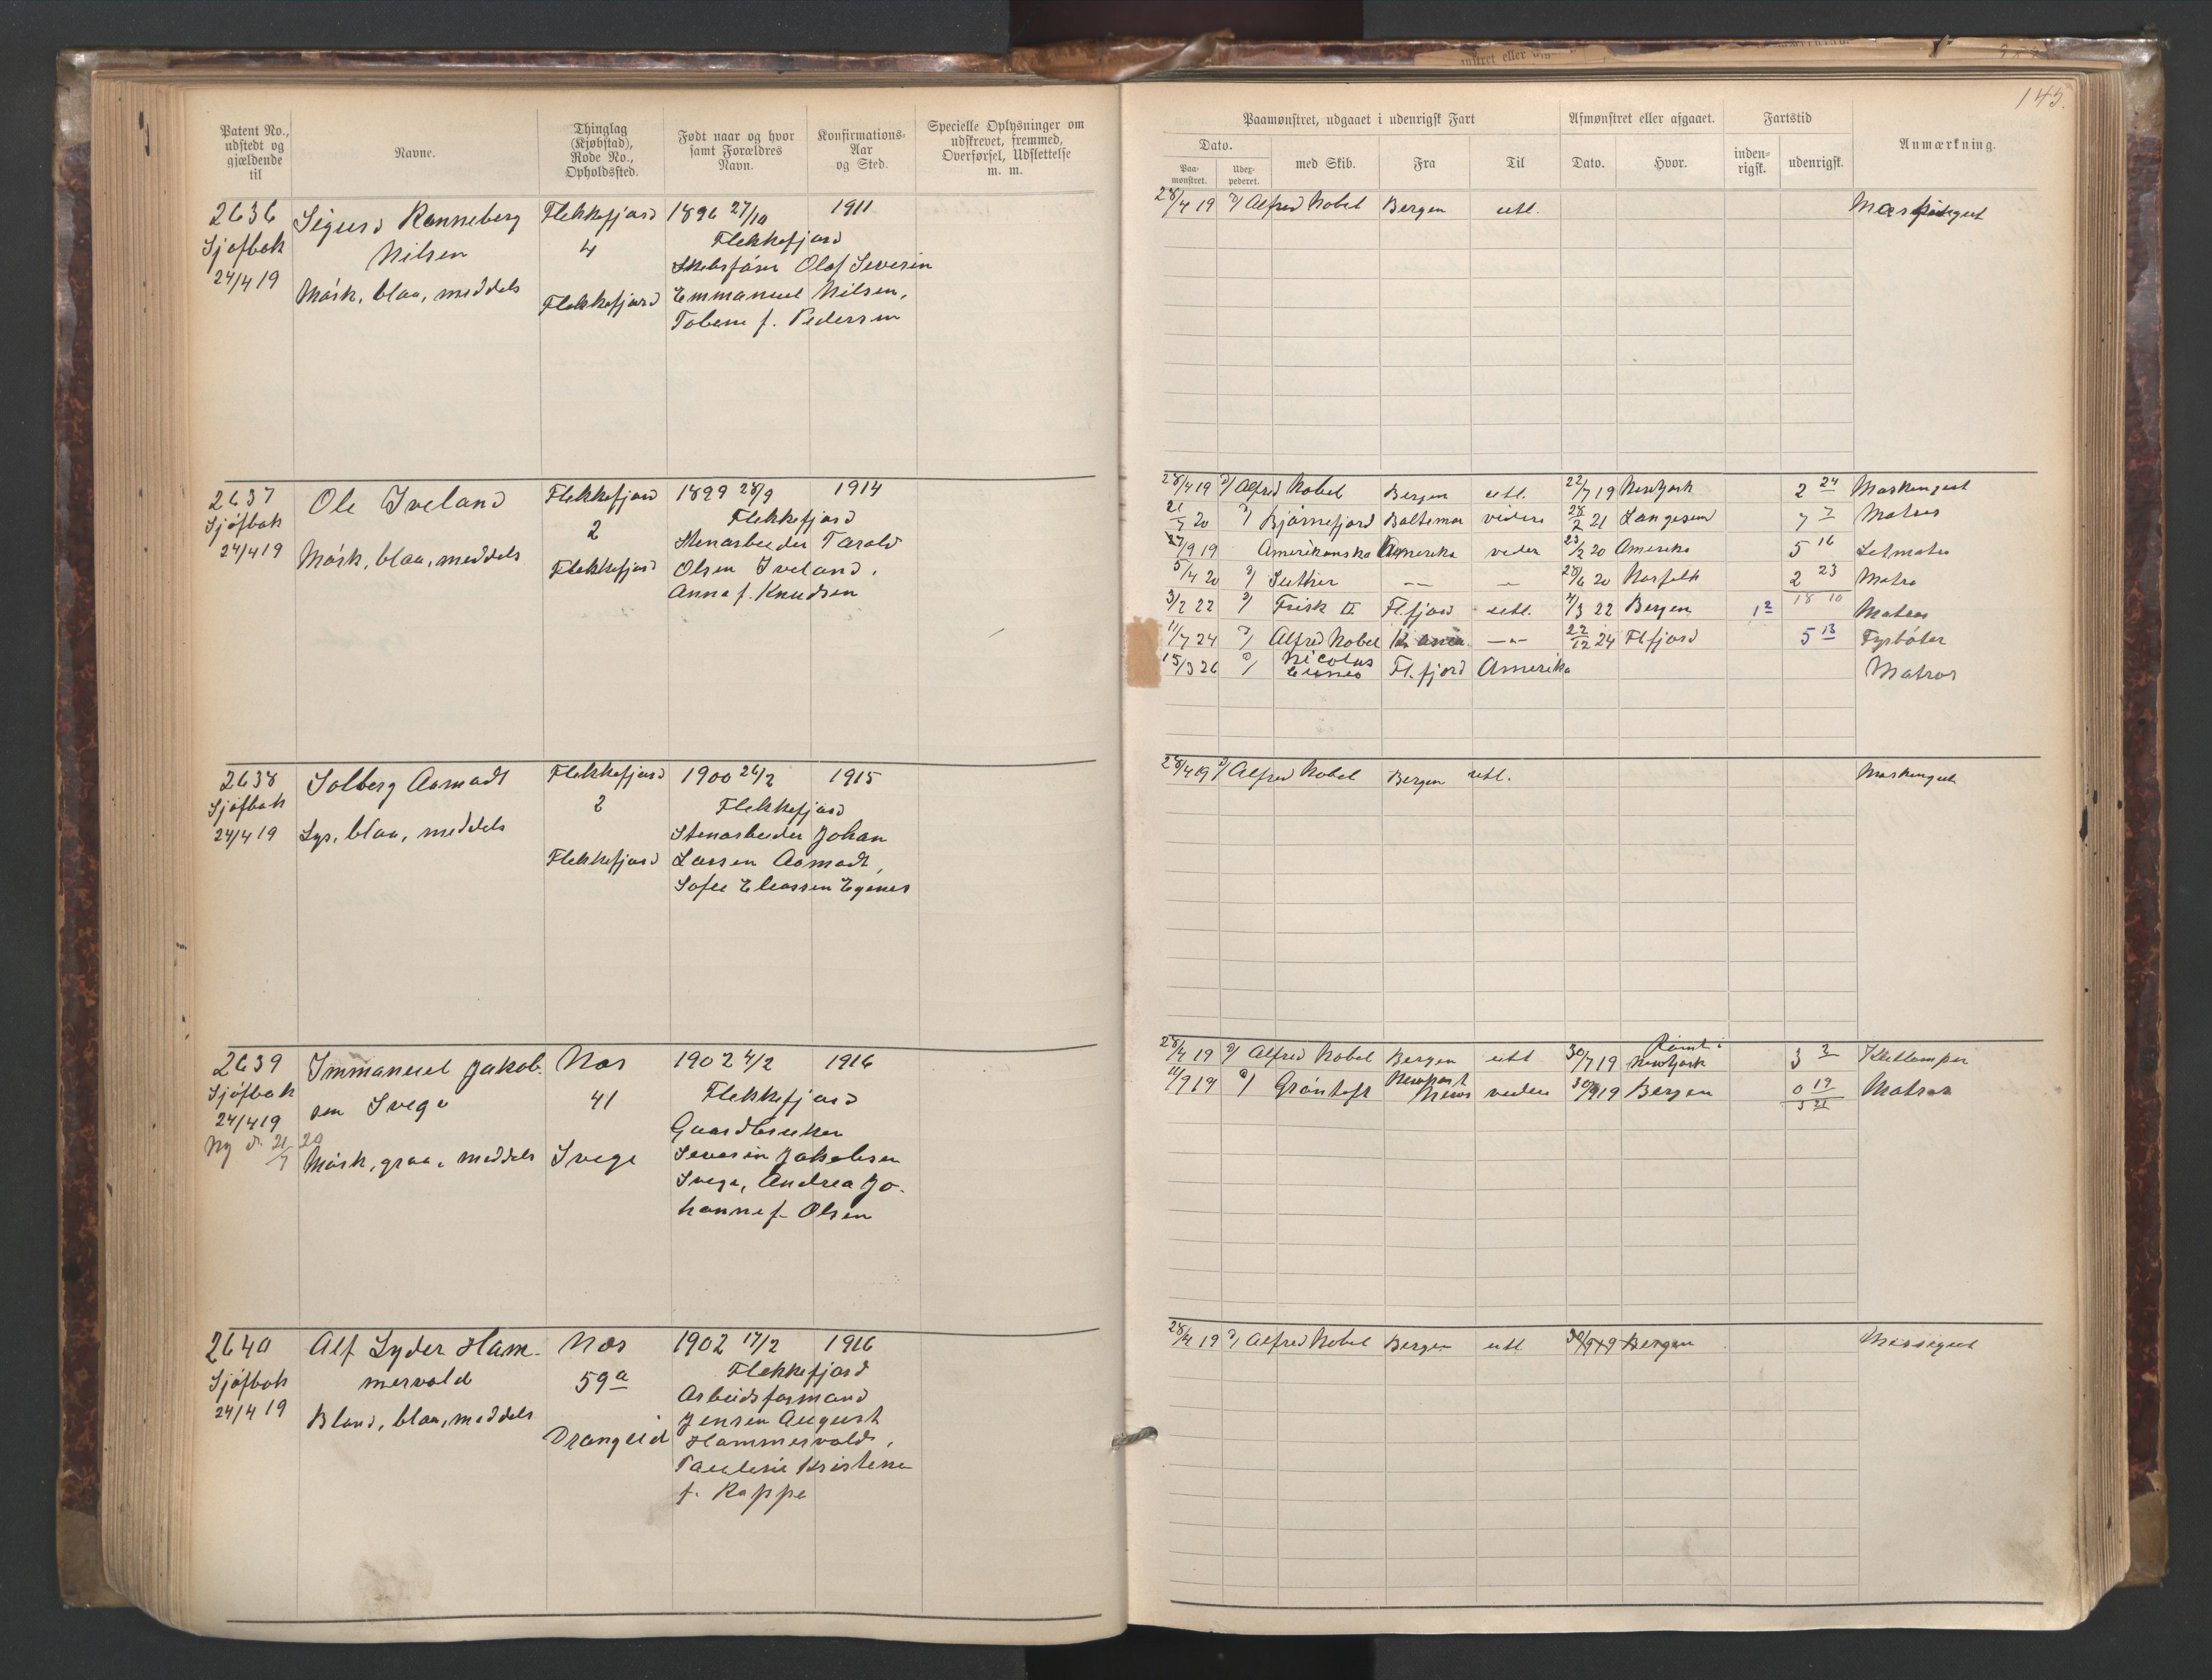 145.
Patent No., udstedt og gjældende til
Navne.
Thinglag (Kjøbstad), Rode No., Opholdssted.
Født naar og hvor samt Forældres Navn.
Konfirmations-Aar og Sted.
Specielle Oplysninger om udskrevet, fremmed, Overførsel, Udslettelse m. m.
Paamønstret, udgaaet i udenrigsk Fart
Afmønstret eller afgaaet.
Fartstid
Anmærkning.
Dato.
med Skib.
Fra
Til
Dato.
Hvor.
inden-rigsk.
udenrigsk.
Paa-mønstret.
2636 Sigurd Ranneberg Flekkefjord 1896 27/10 1911
Sjøfbok Nilsen 4 Flekkefjord
24/4 19 Olaf Severin
Mørk, blaa, meddels Flekkefjord Emmanuel Nilsen,
f. Pedersen
28/4 19 Alfred Nobel Bergen utl.
2637 Ole Iveland Flekkefjord 1899 28/9 1914
Sjøfbok 2 Flekkefjord
24/4 19 Mørk, blaa, meddels Stenarbeider Tarald
Flekkefjord Olsen Iveland,
Anna f. Knudsen
28/4 19 Alfred Nobel Bergen utl. 22/7 19 Newyork 2 24
21/7 20 Bjørnefjord 28/2 21 Langesund 7 7 Matros
27/9 19 Amerikanske Amerika 23/2 20 Amerika 5 16 Letmatros
5/4 20 28/6 20 Norfolk 2 23
18 10
3/2 22 Frisk II Fl.fjord utl. 4/3 22 Bergen 1 2 Matros
11/7 24 Alfred Nobel 22/12 24 Flfjord 5 13 Fyrbøter
15/3 26 Nicolas Fl.fjord Amerika Matros
2638 Solberg Aamodt Flekkefjord 1900 24/2 1915
Sjøfbok 2 Flekkefjord
24/4 19 Lys, blaa, meddels Stenarbeider Johan
Flekkefjord Larsen Aamodt,
Sofie Eliassen Egenes
28/4 19 Alfred Nobel Bergen utl.
2639 Immanuel Jakob- Næs 1902 4/2 1916
Sjøfbok sen Svege 41 Flekkefjord
24/4 19 Gaardbruker
Ny d. 21/7 20 Mørk, graa, meddels Svege Severin Jakobsen
Svege, Andrea Jo-
hanne f. Olsen
28/4 19 Alfred Nobel Bergen utl 30/7 19 Rømt i Newyork 3 2
11/9 19 Grøntoft Newport News 30/9 19 Bergen 0 19 Matros
3 21
2640 Alf Lyder Ham- Næs 1902 17/2 1916
Sjøfbok mervold 59a Flekkefjord
24/4 19 Arbeidsformand
Bland, blaa, meddels Jensen August
Drangeid Hammervold,
Kristine
f. Rappe
28/4 19 Alfred Nobel Bergen utl 30/9 19 Bergen